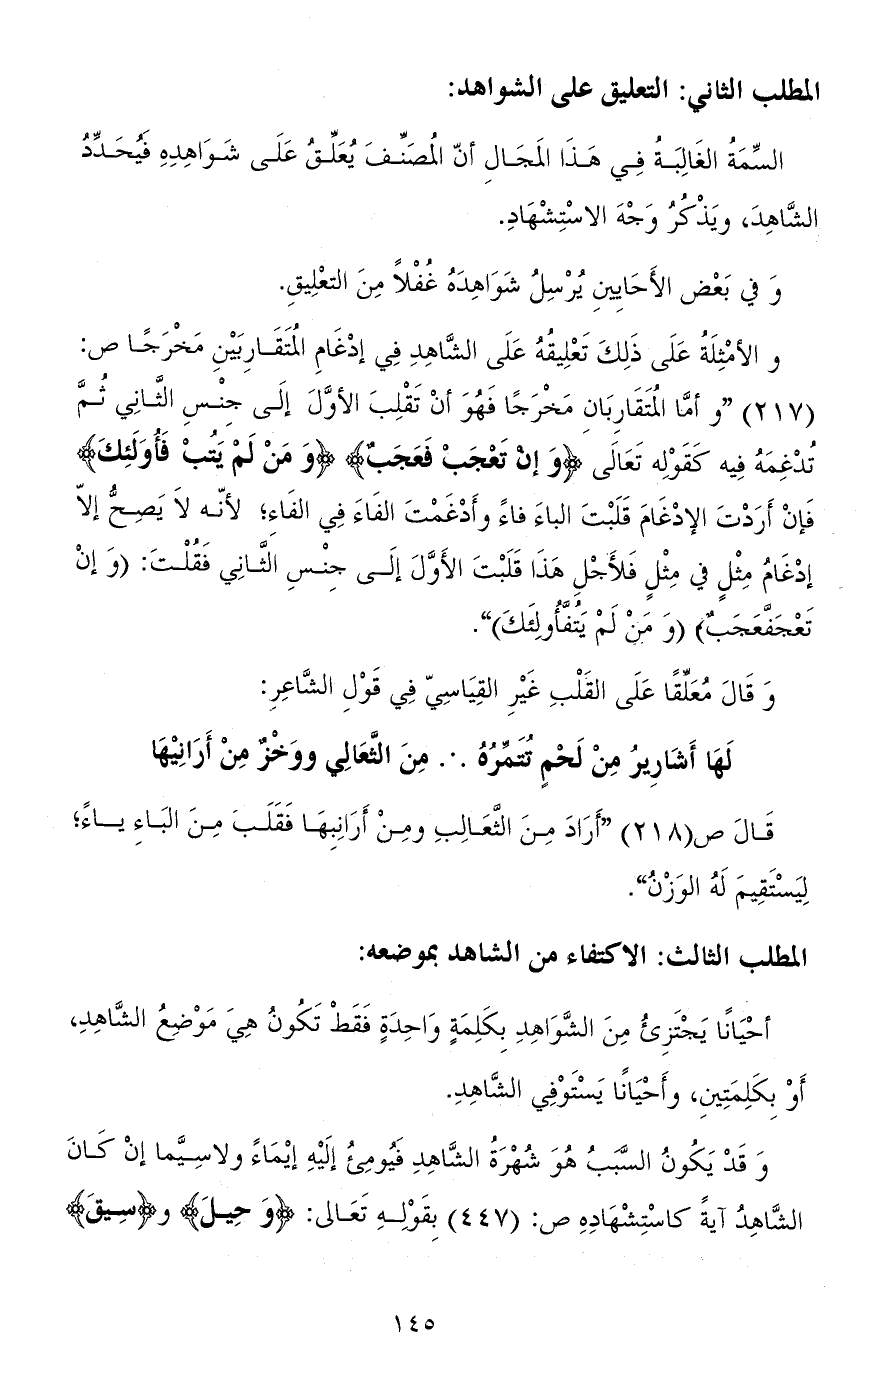 المطلب الثاني: التعليق على الشواهد:
السِّمَةُ الغَالِبَةُ فِي هَذَا المَجَالِ أنّ المُصَنِّفَ يُعَلِّقُ عَلَى شَوَاهِدِهِ فَيُحَدِّدُ
الشَّاهِدَ، ويَذْكُرُ وَجْهَ الاسْتِشْهَادِ.
وَ في بَعْضِ الأَحَايِينِ يُرْسِلُ شَوَاهِدَهُ غُفْلاً مِنَ التعْلِيقِ.
و الأمْثِلَةُ عَلَى ذَلِكَ تَعْلِيقُهُ عَلَى الشَّاهِدِ فِي إدْغَامِ المُتَقَارِبَيْنِ مَخْرَجًا ص:
(٢١٧) ”و أمَّا المُتَقَارِبَانِ مَخْرَجًا فَهُوَ أنْ تَقْلِبَ الأوَّلَ إلَى جِنْسِ الثَّانِي ثُمَّ
تُدْغِمَهُ فِيه كَقَوْلِه تَعَالَى ﴿وَ إنْ تَعْجَبْ فَعَجَبٌ﴾ ﴿وَ مَنْ لَمْ يَتُبْ فَأُولَئِكَ﴾
فَإنْ أرَدْتَ الإدْغَامَ قَلَبْتَ الباءَ فاءً وأدْغَمْتَ الفَاءَ فِي الفَاءِ؛ لأنّه لاَ يَصِحُّ إلاّ
إدْغَامُ مِثْلٍ في مِثْلٍ فَلأجْلِ هَذَا قَلَبْتَ الأوَّلَ إلَى جِنْسِ الثَّانِي فَقُلْتَ: (وَ إنْ
تَعْجَفَّعَجَبٌ) (وَ مَنْ لَمْ يَتُفَّأُولئِكَ)“.
وَ قَالَ مُعَلِّقًا عَلَى القَلْبِ غَيْرِ القِيَاسِيّ فِي قَوْلِ الشَّاعِرِ:
لَهَا أَشَارِيرُ مِنْ لَحْمٍ تُتَمِّرُهُ .·. مِنَ الثَّعَالِي ووَخْزٌ مِنْ أَرَانِيْهَا
قَالَ ص(٢١٨) ”أَرَادَ مِنَ الثَّعَالِبِ ومِنْ أَرَانِبِهَا فَقَلَبَ مِنَ البَاءِ يَاءً؛
لِيَسْتَقِيمَ لَهُ الوَزْنُ“.
المطلب الثالث: الاكتفاء من الشاهد بموضعه:
أحْيَانًا يَجْتَزِئُ مِنَ الشَّوَاهِدِ بِكَلِمَةٍ وَاحِدَةٍ فَقَطْ تَكُونُ هِيَ مَوْضِعُ الشَّاهِدِ،
أوْ بِكَلِمَتِينِ، وأَحْيَانًا يَسْتَوْفِي الشَّاهِدِ.
وَ قَدْ يَكُونُ السَّبَبُ هُوَ شُهْرَةُ الشَّاهِدِ فَيُومِئُ إلَيْهِ إيْمَاءً ولاسِيَّما إنْ كَانَ
الشَّاهِدُ آيةً كاسْتِشْهَادِهِ ص: (٤٤٧) بِقَوْلِهِ تَعَالى: ﴿وَ حِيلَ﴾ و﴿سِيقَ﴾
١٤٥